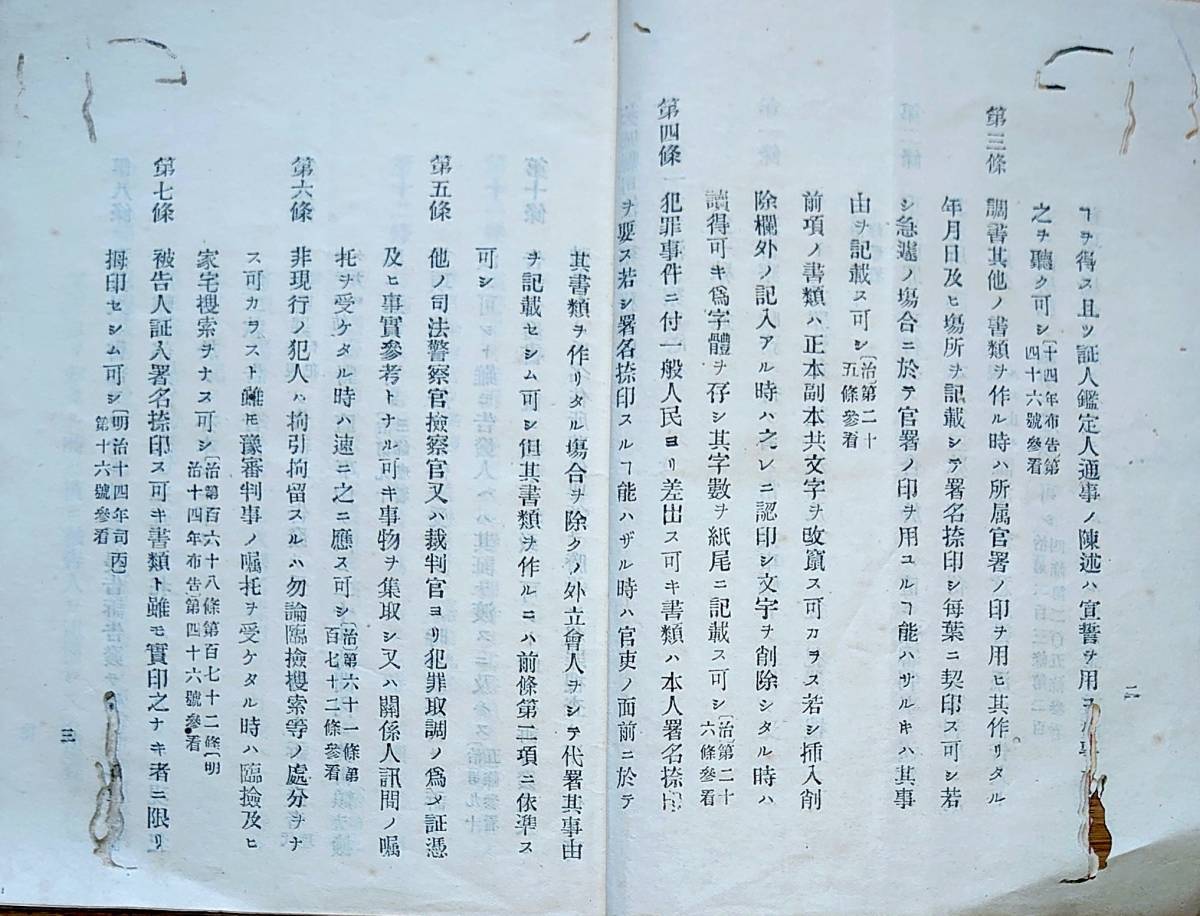 ヿヲ得ス且ツ証人鑑定人通事ノ陳述ハ宣誓ヲ用
之ヲ聽ク可シ〔十四年布告第四十六號參看
第三條 調書其他ノ書類ヲ作ル時ハ所属官署ノ印ヲ用ヒ其作リタル
年月日及ヒ塲所ヲ記載シテ署名捺印シ毎葉ニ契印ス可シ若
シ急遽ノ塲合ニ於テ官署ノ印ヲ用ユルヿ能ハサルキハ其事
由ヲ記載ス可シ〔治第二十五條參看
前項ノ書類ハ正本副本共文字ヲ改竄ス可カラス若シ挿入削
除欄外ノ記入アル時ハ之レニ認印シ文字ヲ削除シタル時ハ
讀得可キ爲字體ヲ存シ其字數ヲ紙尾ニ記載ス可シ〔治第二十六條參看
第四條 犯罪事件ニ付一般人民ヨリ差出ス可キ書類ハ本人署名捺印
ヲ要ス若シ署名捺印スルヿ能ハザル時ハ官吏ノ面前ニ於テ
二
其書類ヲ作リタル塲合ヲ除クノ外立會人ヲシテ代署其事由
ヲ記載セシム可シ但其書類ヲ作ルニハ前條第二項ニ依準ス
可シ
第五條 他ノ司法警察官檢察官又ハ裁判官ヨリ犯罪取調ノ爲メ証憑
及ヒ事實參考トナル可キ事物ヲ集取シ又ハ關係人訊問ノ囑
托ヲ受ケタル時ハ速ニ之ニ應ス可シ〔治第六十一條第百七十二條參看
第六條 非現行ノ犯人ハ拘引拘留スルハ勿論臨檢搜索等ノ處分ヲナ
ス可カラスト雖モ豫審判事ノ囑托ヲ受ケタル時ハ臨檢及ヒ
家宅搜索ヲナス可シ〔治第百六十八條第百七十二條〔明治十四年布告第四十六號參看
第七條 被告人証人署名捺印ス可キ書類ト雖モ實印之ナキ者ニ限リ
拇印セシム可シ〔明治十四年司丙第十六號參看
三